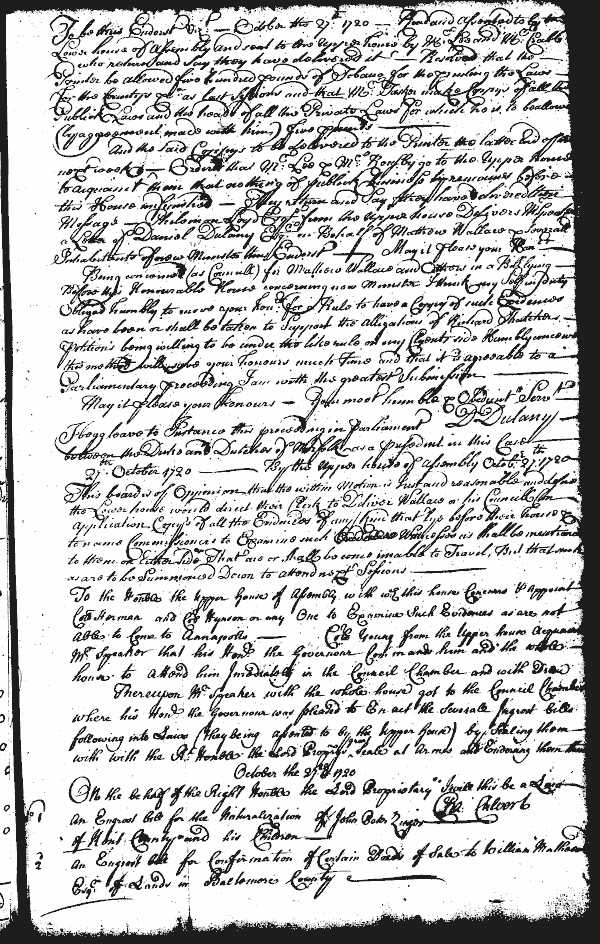 To be thus Endorst Vizt — October the 27th 1720 — Read and Assented to by the
Lower house of Assembly and sent to the Upper house by Mr and Mr
who returne and say they have delivered it — Resolved that the
Printer be allowed five hundred pounds of Tobacco for the printing the Laws
for the Countys as last Sessions and that Mr make Copys of all the
Publick Laws and the heads of all the Private Laws for which he is to be allowed
(by agreement made with him) five pounds
And the said Copys to be delivered to the Printer the latter End of the
next week — Ordered that Mr Lee & Mr go to the Upper house
to acquaint them that nothing of Publick business remaines before
this House unfinished — They return and say they have delivered their
Message — Esqr from the Upper house Delivers
a Letter of Daniel Dulany Esqr in Behalf of Mathew Wallace & Severall
Inhabitants of new Munster thus Endorst — May it please your
Being concerned (as Councill) for Mathew Wallace and others in a
Before this Honourable House concerning new Munster I think my self in duty
Obliged humbly to move your honrs for a Rule to have a Copy of such Evidences
as have been or shall be taken to Support the allegations of Richard Thatchers
Petition being willing to be under the like rule on my Clyents side I humbly conceive
the method will save your honours much Time and that it is agreable to a
Parliamentary proceeding I am with the greatest Submission
May it please your Honours — Your most humble & Obedient Servt
D Dulany
I begg leave to Instance this proceeding in Parliament
between the Duke and Dutches of Norfolk as a president in this Case
27th October 1720 — By the Upper house of Assembly Octobr 27th 1720
This board is of Opinion that the within Motion is Just and reasonable and desire
the Lower house would direct their Clerk to Deliver Wallace or his Councill on
Application Copys of all the Evidences of any kind that lye before their house &
to name Commissioners to Examine such Witnesses as shall be mentioned
to them on Either side That are or shall be come unable to Travel, But that such
as are to be Summoned Down to attend next Sessions
To the Honble the Upper House of Assembly with wch this house Concurrs & Appoint
Coll Herman and Coll Hynson or any One to Examine Such Evidences as are not
Able to Come to Annapolis — Coll Young from the Upper house Acquaints
Mr Speaker that his Honr the Governour Command him and the whole
house to Attend him Imediately in the Council Chamber and with
Thereupon Mr Speaker with the whole house got to the Council Chamber
where his Honr the Governour was pleased to En act the Severale Ingrost bills
following into Laws (they being assented to by the Upper house) by Sealing them
with with the Rt Honble the Lord Proprys Seale at Armes and Endorsing them thus
October the 27th 1720
On the behalf of the Right Honble the Lord Proprietary I will this be a Law
Cha Calvert
No 1 An Engrost bill for the Naturalization of John Peter Zenger
of Kent County and his Children
2 An Engrost bill for Confirmation of Certain Deeds of Sale to William
Esqr of Lands in Baltemore County